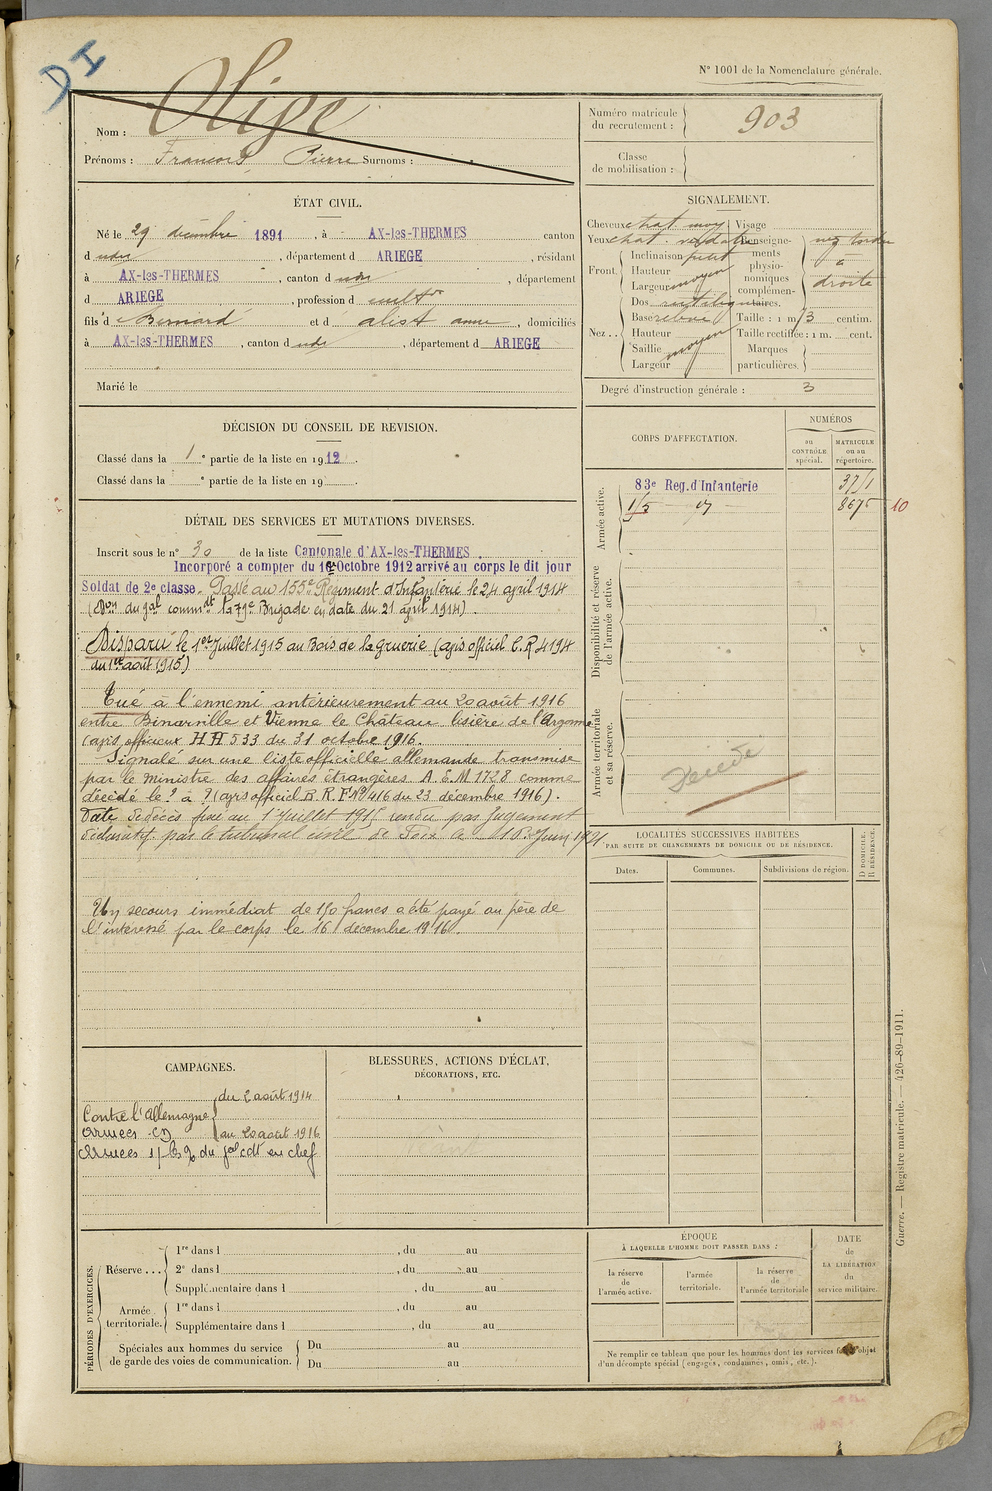 DI
N° 1001 de la Nomenclature générale.
Nom : Olive
Prénoms : François Pierre Surnoms :
Numéro matricule du recrutement : 903
Classe de mobilisation :
ÉTAT CIVIL.
Né le 29 décembre 1891, à AX-les-THERMES canton
d udn, département d ARIEGE, résidant
à AX-les-THERMES, canton d udn, département
d ARIEGE, profession d cultr
fils d e Bernard et d alist anne, domiciliés
à AX-les-THERMES, canton d udn, département d ARIEGE
Marié le
SIGNALEMENT.
Cheveux chat. moy Visage
Yeux chat. verdatre Renseigne-
ments
physio-
nomiques
complémen-
taires.
nez tordu
à
droite
Front. Inclinaison petit
Hauteur moyen
Largeur
Nez.. Dos rectiligne
Base relevé
Hauteur moyen
Saillie
Largeur
Taille : 1 m 73 centim.
Taille rectifiée : 1 m. cent.
Marques
particulières.
Degré d'instruction générale : 3
DÉCISION DU CONSEIL DE REVISION.
Classé dans la 1 e partie de la liste en 1912.
Classé dans la e partie de la liste en 19 .
CORPS D'AFFECTATION.
NUMÉROS
au CONTRÔLE spécial.
MATRICULE ou au répertoire.
Armée active.
83e Reg. d'Infanterie 3771
155 - d° - 8675 10
Disponibilité et réserve de l'armée active.
Armée territoriale et sa réserve.
Décédé
DÉTAIL DES SERVICES ET MUTATIONS DIVERSES.
Inscrit sous le n° 30 de la liste Cantonale d'AX-les-THERMES.
Incorporé a compter du 1er Octobre 1912 arrivé au corps le dit jour
Soldat de 2e classe. Passé au 155e Régiment d'Infanterie le 24 april 1914
(Don du gal commdt la 79e Brigade en date du 21 april 1914).
Disparu le 1er Juillet 1915 au Bois de la Gruerie (avis officiel C.R 4194
du 1er août 1915)
Tué à l'ennemi antérieurement au 20 août 1916
entre Binarville et Vienne le Château lisière de l'Argonne
(avis officieux HA 533 du 31 octobre 1916.
Signalé sur une liste officielle allemande transmise
par le ministre des affaires étrangères A. E. M. 1728 comme
décédé le ? à ? (avis officiel B. R. F. N° 416 du 23 décembre 1916).
Date de décès fixée au 1 Juillet 1915 rendu par jugement
déclaratif par le tribunal civil de Foix le 10 Juin 1921.
Un secours immédiat de 150 francs a été payé au père de
l'intéressé par le corps le 16 décembre 1916.
LOCALITÉS SUCCESSIVES HABITÉES
PAR SUITE DE CHANGEMENTS DE DOMICILE OU DE RÉSIDENCE.
Dates.
Communes.
Subdivisions de région.
D DOMICILE. R RÉSIDENCE.
CAMPAGNES.
Contre l'Allemagne du 2 août 1914
Armées au 20 août 1916
du gal cdt en chef
BLESSURES, ACTIONS D'ÉCLAT,
DÉCORATIONS, ETC.
PÉRIODES D'EXERCICES.
Réserve... 1re dans l , du au
2e dans l , du au
Supplémentaire dans l , du au
Armée territoriale. 1re dans l , du au
Supplémentaire dans l , du au
Spéciales aux hommes du service
de garde des voies de communication. Du au
Du au
ÉPOQUE
À LAQUELLE L'HOMME DOIT PASSER DANS :
la réserve de l'armée active.
l'armée territoriale.
la réserve de l'armée territoriale
DATE de LA LIBÉRATION du service militaire.
Ne remplir ce tableau que pour les hommes dont les services font l'objet
d'un décompte spécial (engagés, condamnés, omis, etc.).
Guerre. — Registre matricule. — 426-89-1911.